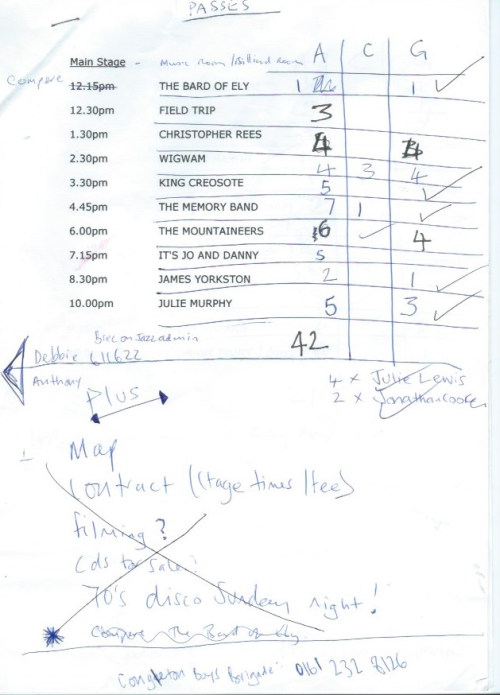 PASSES
Main Stage - Music Room / Billiard Room A C G
Compere 12.15pm THE BARD OF ELY 1 1
12.30pm FIELD TRIP 3
1.30pm CHRISTOPHER REES 4 4
2.30pm WIGWAM 4 3 4
3.30pm KING CREOSOTE 5
4.45pm THE MEMORY BAND 7 1
6.00pm THE MOUNTAINEERS 6 4
7.15pm IT'S JO AND DANNY 5
8.30pm JAMES YORKSTON 2 1
10.00pm JULIE MURPHY 5 3
Brecon Jazz admin 42
Debbie 611622
Anthony
4 x Julie Lewis
2 x Jonathan
Plus
Map
Contract (stage times / fee)
filming?
Cds for sale
70's disco Sunday night!
Compere - The Bard of Ely
Congleton Boys Brigade: 0161 232 8126